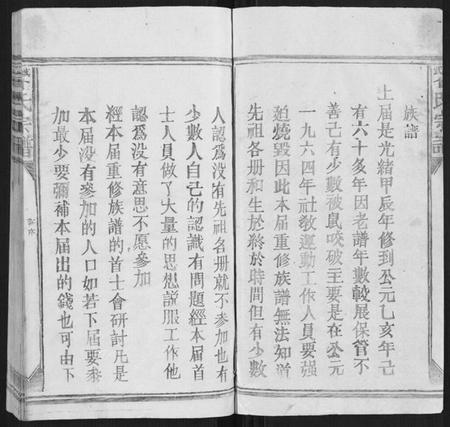 族譜
上屆是光緒甲辰年修到公元乙亥年己
有六十多年因老譜年數較展保管不
善己有少數被鼠咬破主要是在公元
一九六四年社教運動工作人員要强
迫燒毀因此本屆重修族譜無法知道
先祖各册和生於終於時間但有少數
人認爲没有先祖名册就不參加也有
少數人自己的認識有問題經本屆首
士人員做了大量的思想說服工作他
認爲没有意思不愿參加
經本屆重修族譜的首士會研討凡是
本届没有參加的人口如若下屆要參
加最少要彌補本届出的錢也可由下
氏宗譜